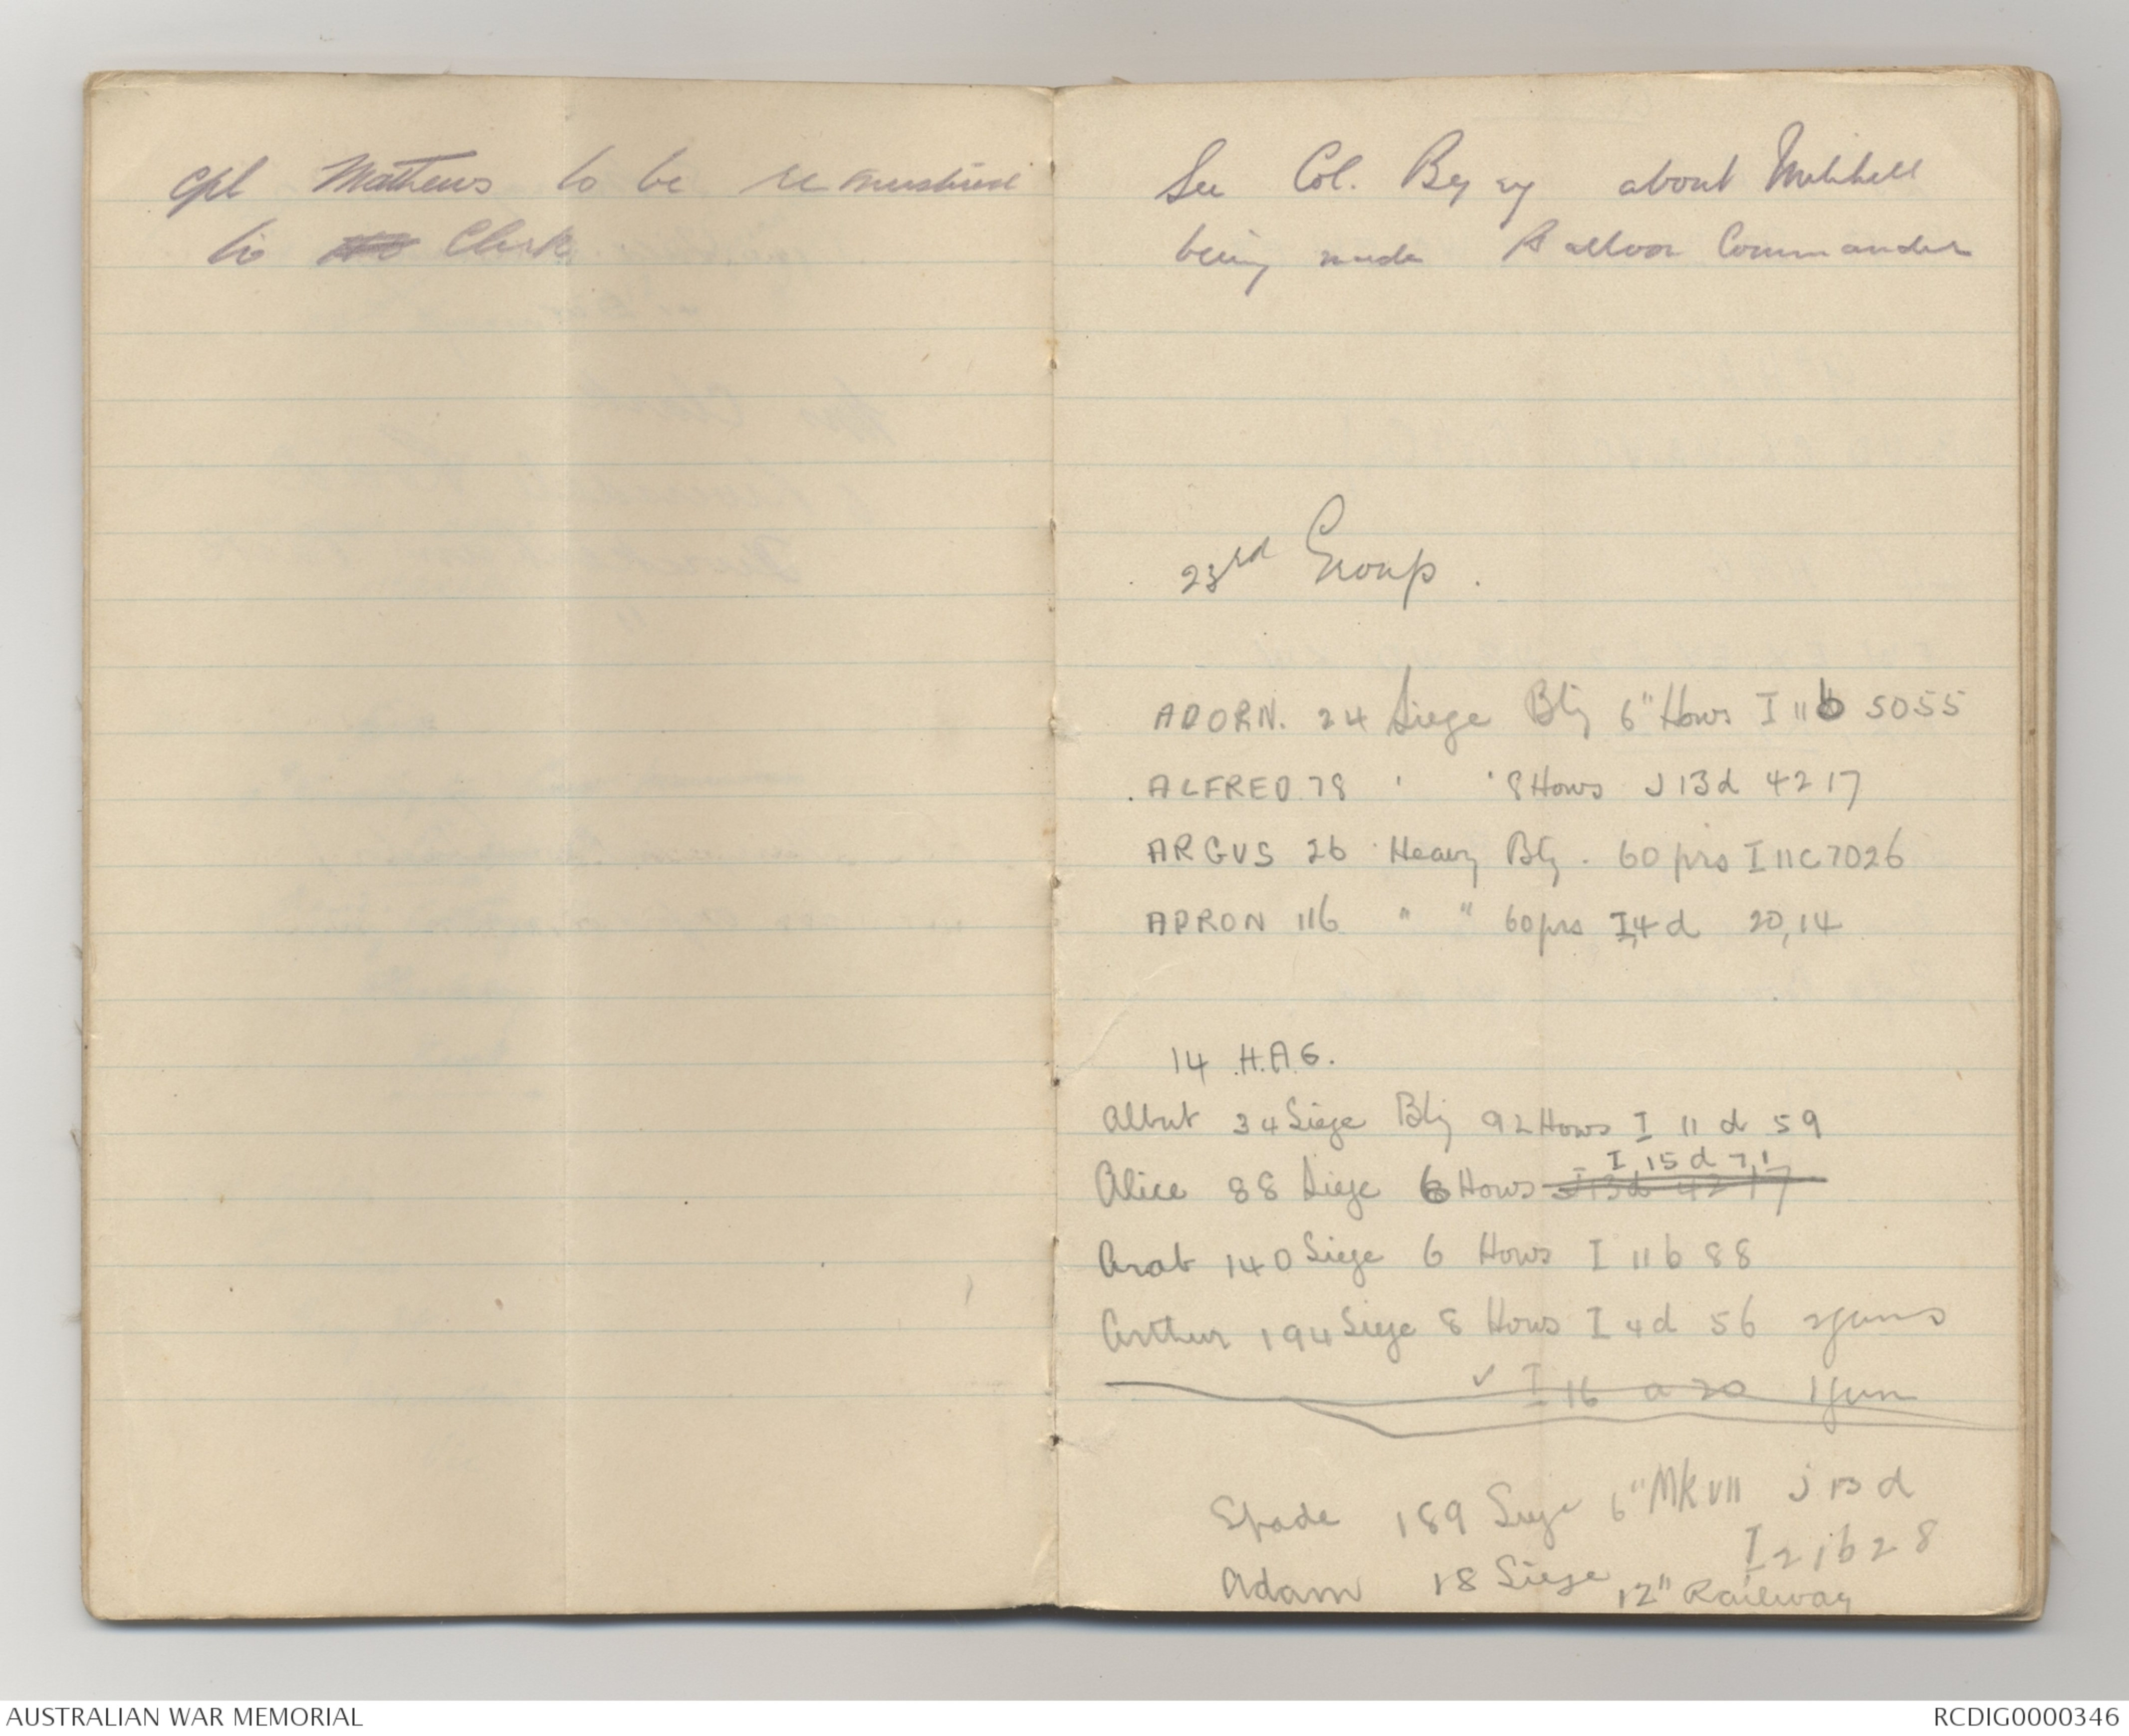 Cpl Mathews to be remustered
to Clerk
See Col. about Mitchell
being made Balloon Commander
23rd Group.
ADORN. 24 Siege Bty 6" Hows I 11 b 5055
ALFRED 78 ' ' 8 Hows J 13d 4217
ARGUS 26 Heavy Bty. 60 prs I 11C7026
APRON 116 " " 60prs I,4 d 20,14
14 H.A.G.
Albert 34 Siege Bty 92 Hows I 11 d 59
I 15 d 7,1
Alice 88 Siege 6 Hows J13d 4217
Arab 140 Siege 6 Hows I 11 b 88
Arthur 194 Siege 8 Hows I 4d 56 2guns
✓ I 16 a 20 1gun
Spade 189 Siege 6" Mk VII J 13 d
I 21b28
Adam 18 Siege 12" Railway
AUSTRALIAN WAR MEMORIAL
RCDIG0000346